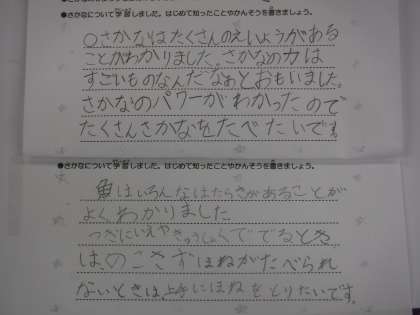 ●さかなについて学習しました。はじめて知ったことやかんそうを書きましょう。
○さかなはたくさんのえいようがある
ことがわかりました。さかなの力は
すごいものなんだなぁとおもいました。
さかなのパワーがわかったので
たくさんさかなをたべたいです。
●さかなについて学習しました。はじめて知ったことやかんそうを書きましょう。
魚はいろんなはたらきがあることが
よくわかりました
つぎにいえやきゅうしょくででるとき
は、のこさずほねがたべられ
ないときは、上手にほねをとりたいです。